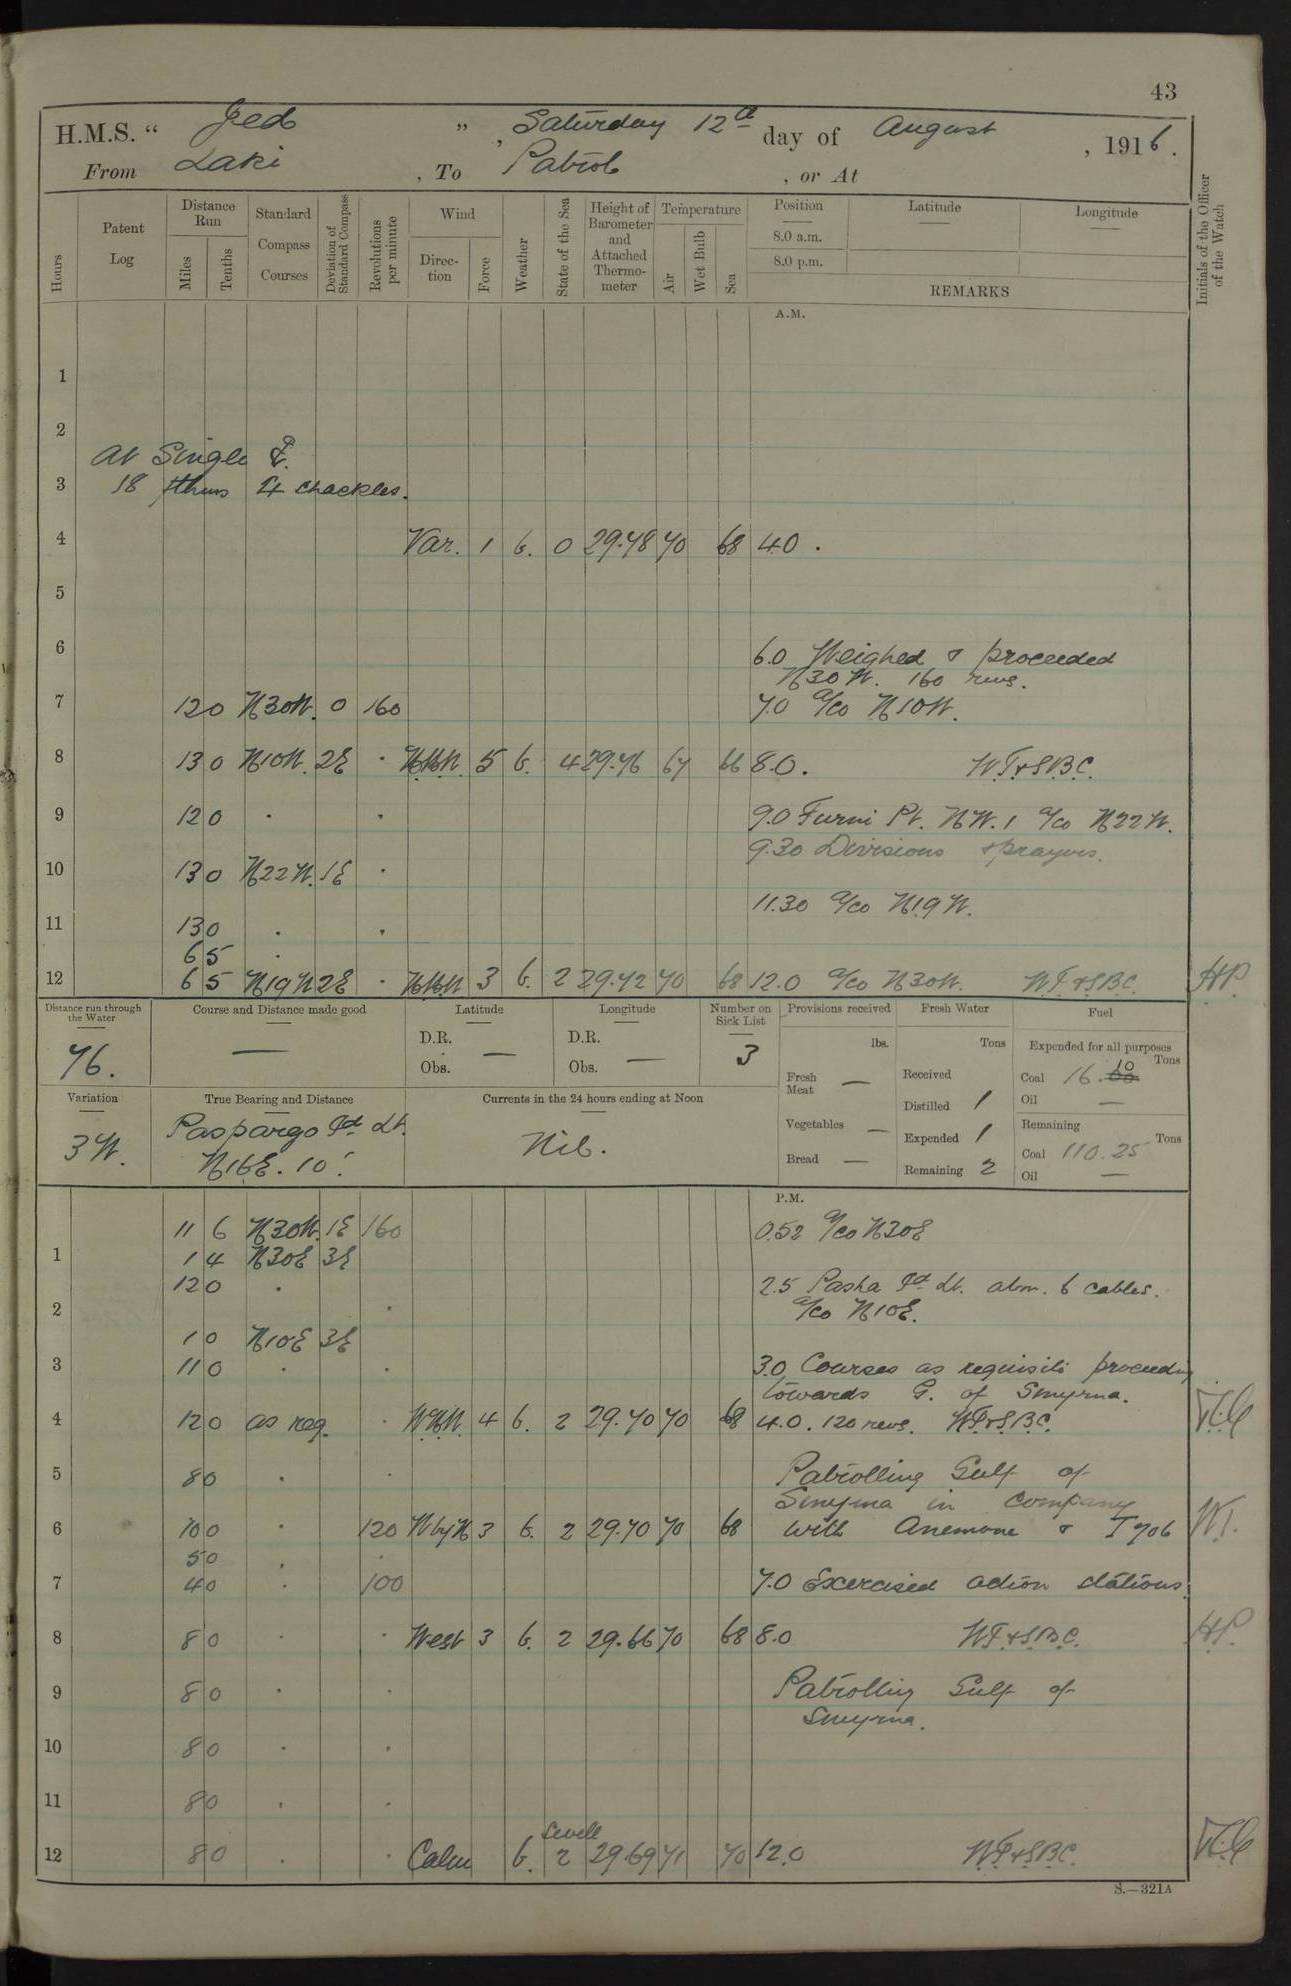 43
H.M.S. “ Jed ”, Saturday 12th day of August, 1916.
From Laki, To Patrol, or At
Hours
Patent Log
Distance Run
Miles
Tenths
Standard Compass Courses
Deviation of Standard Compass
Revolutions per minute
Wind
Direction
Force
Weather
State of the Sea
Height of Barometer and Attached Thermometer
Temperature
Air
Wet Bulb
Sea
Position
8.0 a.m.
8.0 p.m.
Latitude
Longitude
REMARKS
Initials of the Officer of the Watch
A.M.
1
2
At Single
3 18 fthms 4 shackles.
4 Var. 1 b. 0 29.48 70 68 4.0.
5
6 6.0 Weighed & proceeded
N30W. 160 revs.
7 12 0 N30W. 0 160 7.0 a/co N10W.
8 13 0 N10W. 2E . NNW. 5 b. 4 29.46 67 66 8.0. W.T. & S.B.C.
9 12 0 . . 9.0 Furni Pt. NW. 1 a/co N22W.
9.30 Divisions & prayers.
10 13 0 N22W. 1E .
11.30 a/co N19W.
11 13 0 . .
6 5 .
12 6 5 N19W 2E . NNW 3 b. 2 29.42 70 68 12.0 a/co N30W. W.T. & S.B.C. HP.
Distance run through the Water
76.
Course and Distance made good
—
Latitude
D.R.
Obs. —
Longitude
D.R.
Obs. —
Number on Sick List
3
Provisions received
lbs.
Fresh Meat —
Vegetables —
Bread —
Fresh Water
Tons
Received
Distilled 1
Expended 1
Remaining 2
Fuel
Expended for all purposes
Tons
Coal 16.10
Oil —
Remaining
Tons
Coal 110.25
Oil —
Variation
3W.
True Bearing and Distance
Paspargo Id Lt.
N16E. 10'.
Currents in the 24 hours ending at Noon
Nil.
P.M.
11 6 N30W. 1E 160 0.52 a/co N30E
1 1 4 N30E 3E
12 0 . 2.5 Pasha Id Lt. abm. 6 cables.
2 . a/co N10E.
1 0 N10E 3E
3 11 0 . . 3.0 Courses as requisite proceeding
towards G. of Smyrna.
4 12 0 as req. . WNW. 4 b. 2 29.40 70 68 4.0. 120 revs. W.T. & S.B.C.
5 8 0 . . Patrolling Gulf of
Smyrna in company
6 10 0 . 120 W by N 3 b. 2 29.40 70 68 with Anemone & T 706
5 0 . .
7 4 0 . 100 7.0 Exercised action stations.
8 8 0 . . West 3 b. 2 29.66 70 68 8.0 W.T. & S.B.C. HP.
9 8 0 . . Patrolling Gulf of
Smyrna.
10 8 0 . .
11 8 0 . .
Swell
12 8 0 . . Calm b. 2 29.69 71 70 12.0 W.T. & S.B.C.
S.—321A